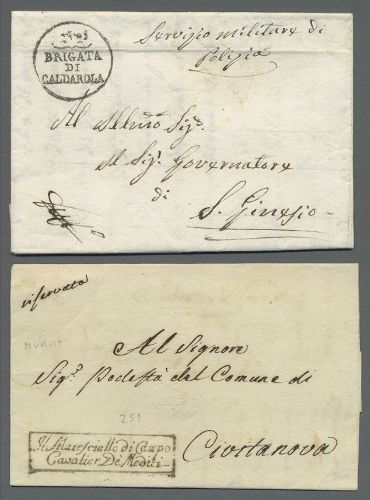 BRIGATA
DI
CALDAROLA
Servizio militare di
Polizia
Al Sig.
Il Sig. Governatore
di
S. Ginesio
riservata
MURAT
Al Signore
Sig. Podestà del Comune di
251
Civitanova
Il Maresciallo di Campo
Cavalier De Medici